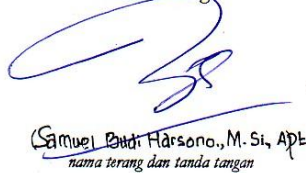 (Samuel Budi Harsono., M. Si, Apt
nama terang dan tanda tangan